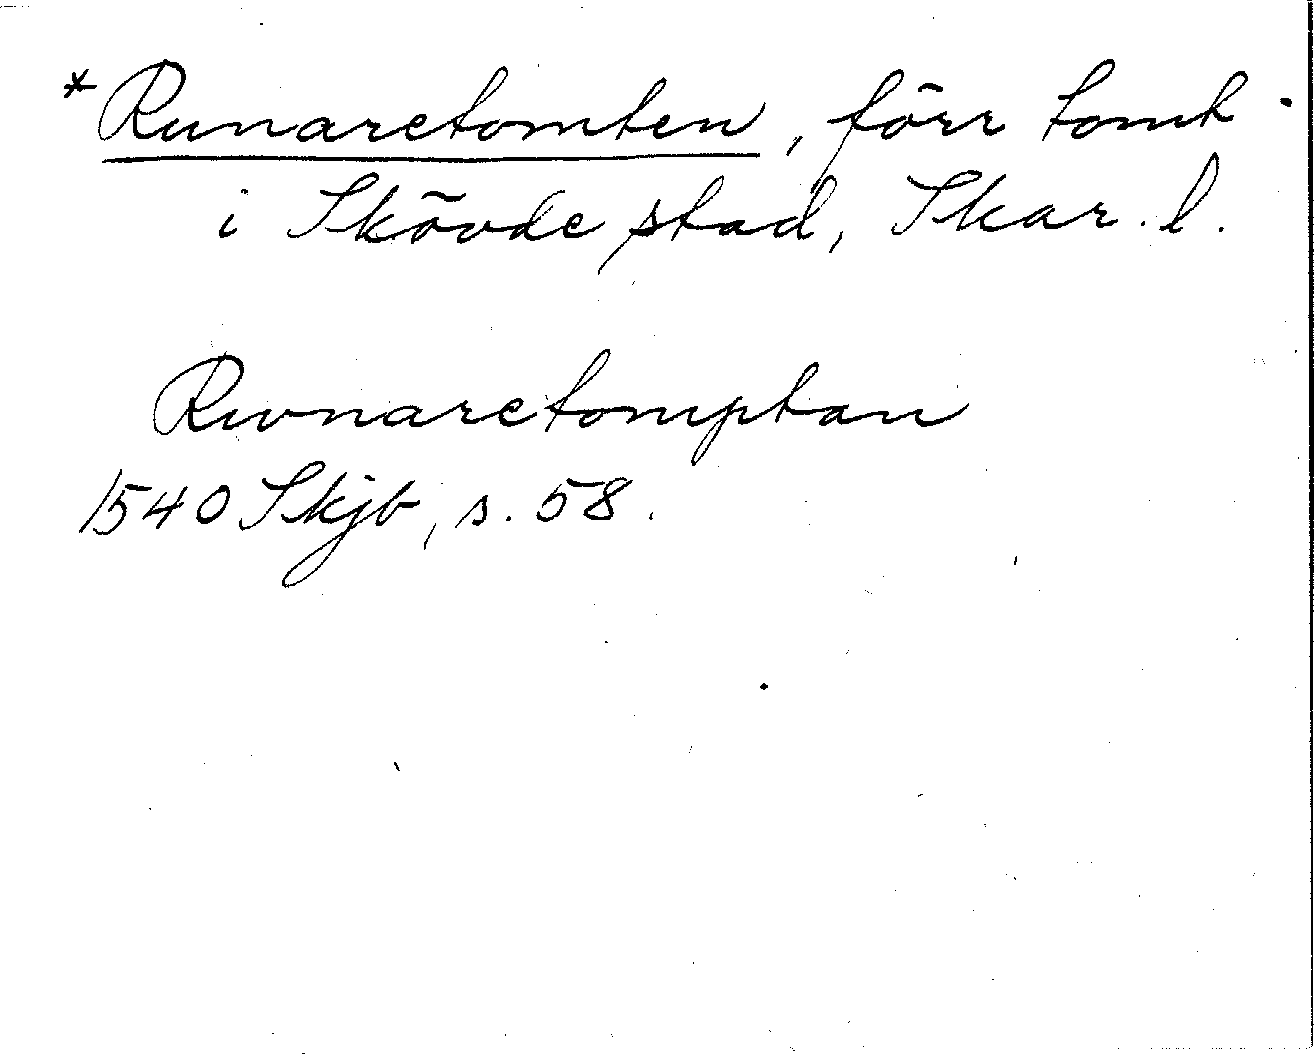 *Runaretomten, förr tomt
i Skövde stad, Skar. l.
Rwnaretomptan
1540 Skjb, s. 58.